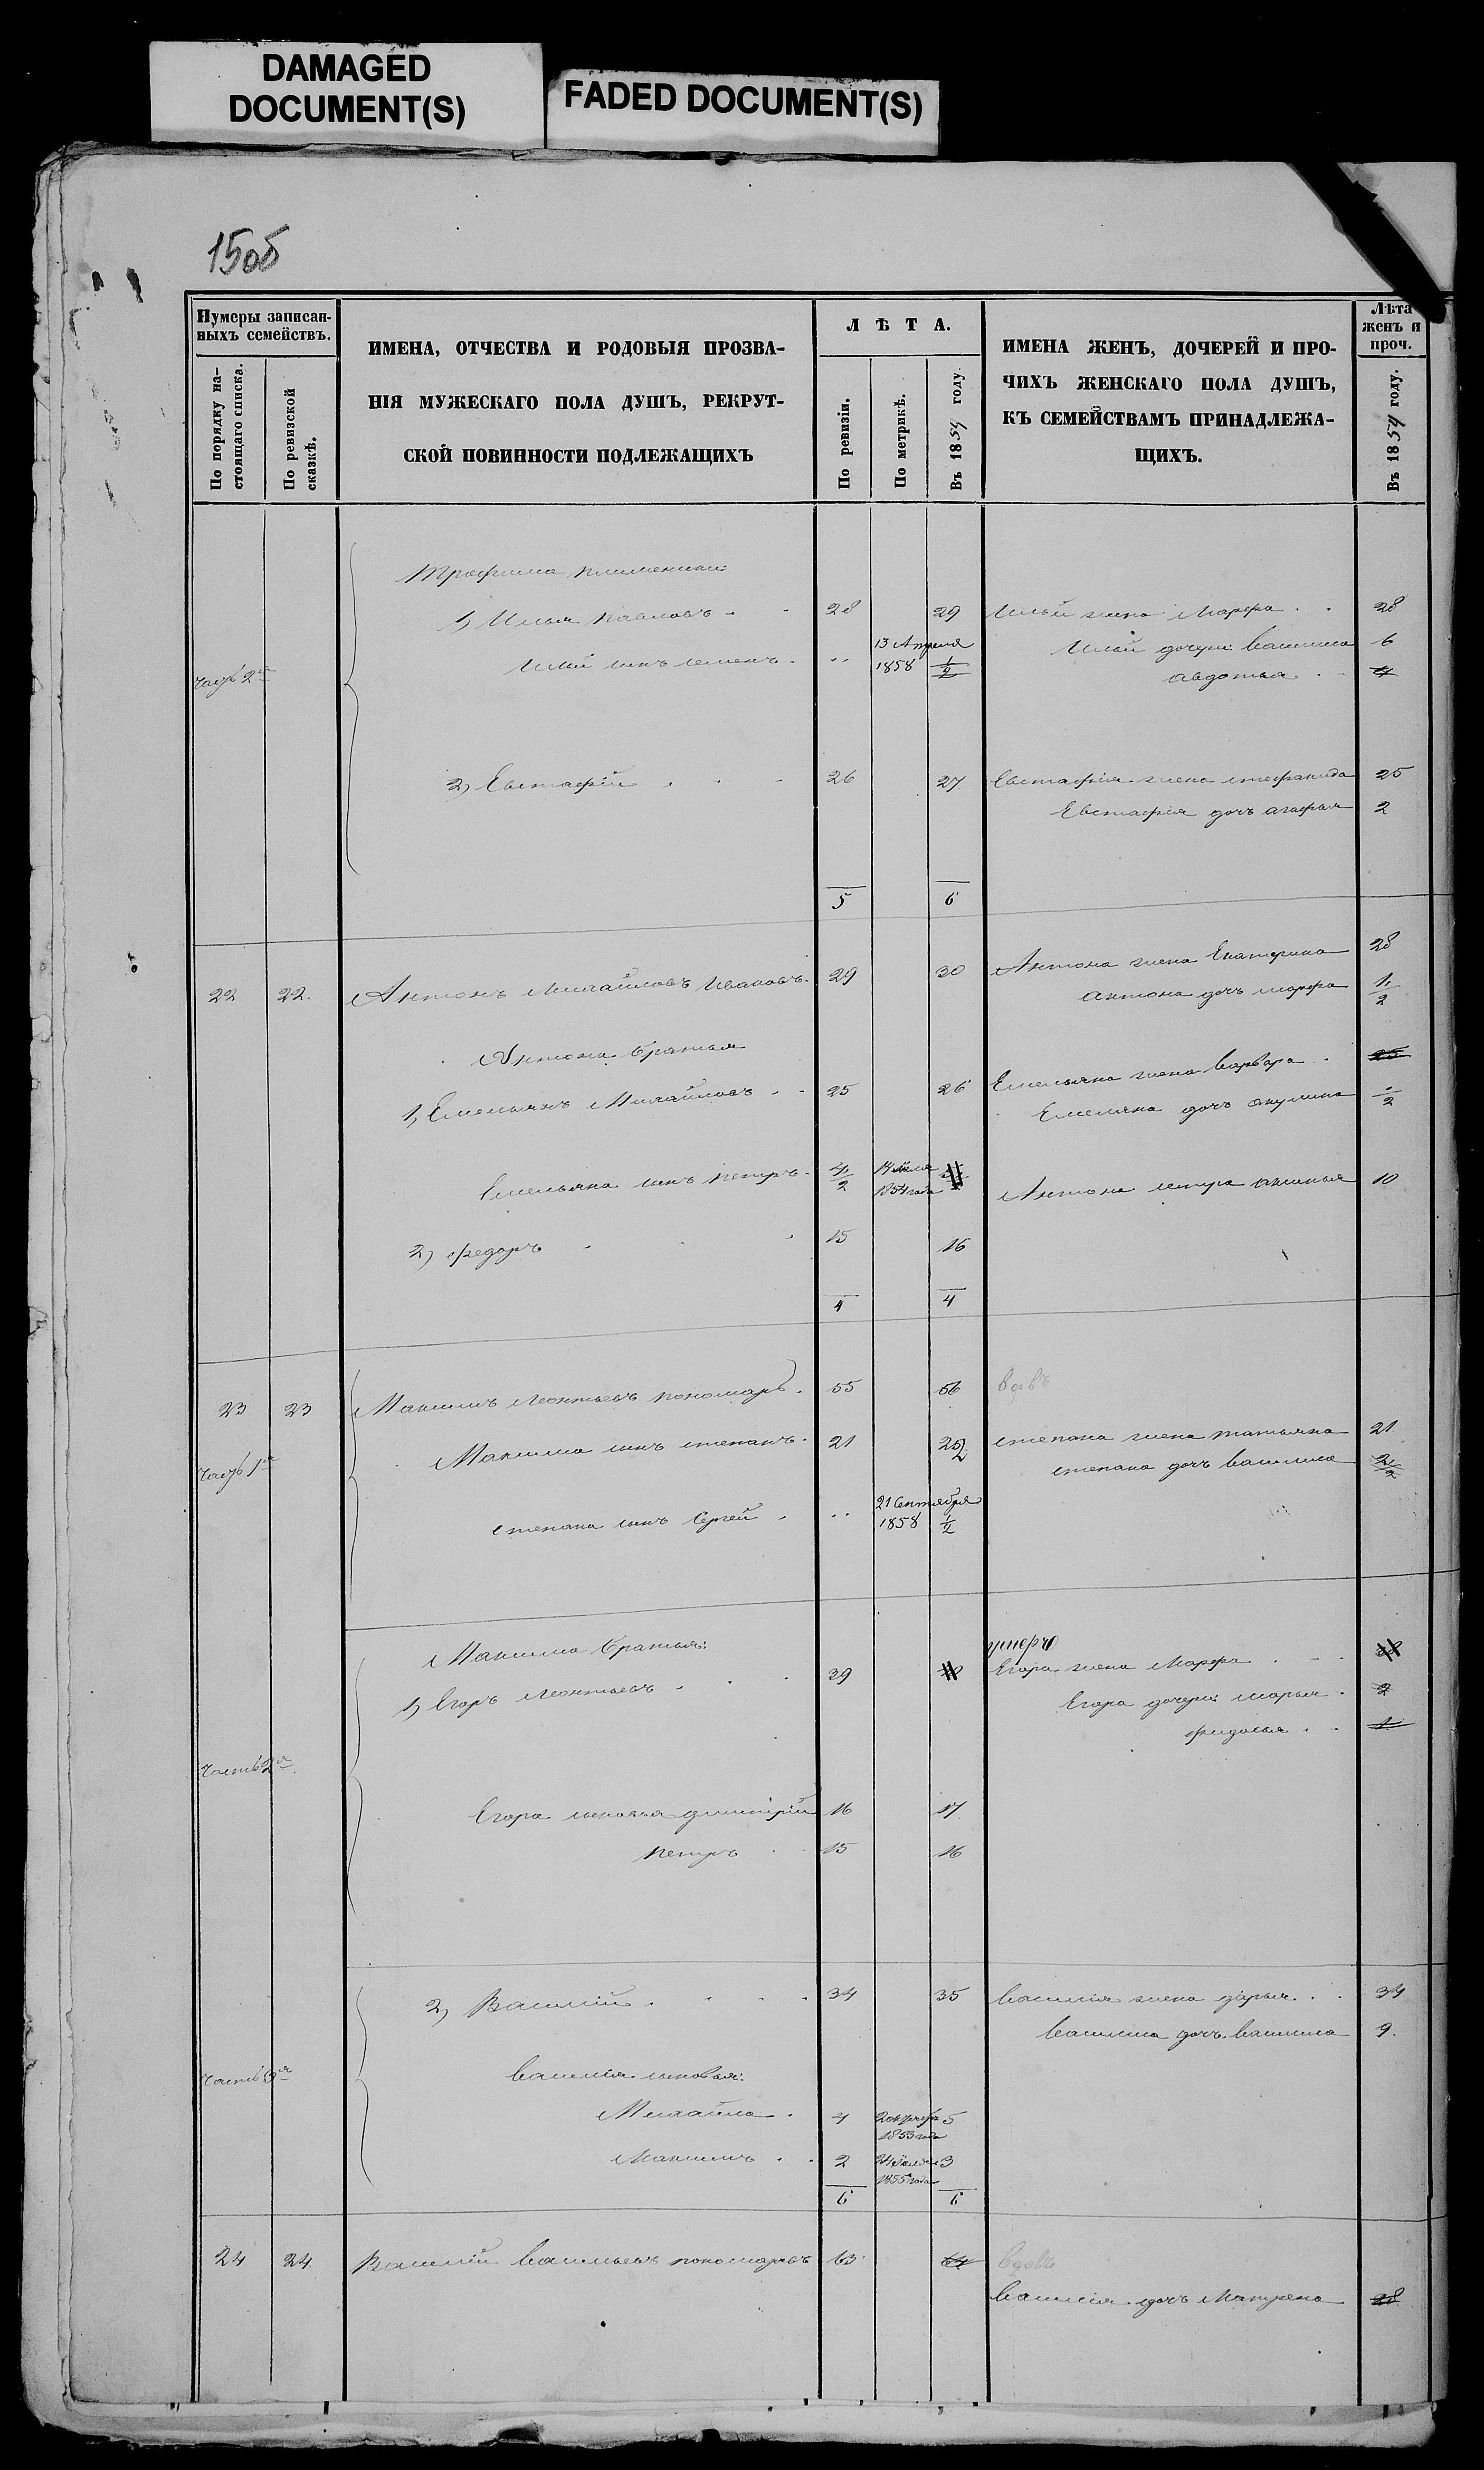 DAMAGED
DOCUMENT(S)
FADED DOCUMENT(S)
150б
Нумеры записан-
ныхъ семействъ.
По порядку на-
стоящаго списка.
По ревизской
сказкѣ.
ИМЕНА, ОТЧЕСТВА И РОДОВЫЯ ПРОЗВА-
НІЯ МУЖЕСКАГО ПОЛА ДУШЪ, РЕКРУТ-
СКОЙ ПОВИННОСТИ ПОДЛЕЖАЩИХЪ
ЛѢТА.
По ревизіи.
По метрикѣ.
Въ 1859 году.
ИМЕНА ЖЕНЪ, ДОЧЕРЕЙ И ПРО-
ЧИХЪ ЖЕНСКАГО ПОЛА ДУШЪ,
КЪ СЕМЕЙСТВАМЪ ПРИНАДЛЕЖА-
ЩИХЪ.
Лѣта
женъ и
проч.
Въ 1859 году.
Трофима племеники:
1, Илья Павловъ 28 29 Ильи жена Марфа 28
Ильи сынъ семенъ 13 Апреля 1858 1/2 Ильи дочери: василиса 6
часть 2я
авдотья 4
2, Евстафій 26 27 Евстафія жена степанида 25
Евстафія дочь агафья 2
5 6
22 22. Антонъ Михайловъ Ивановъ 29 30 Антона жена Екатерина 28
антона дочь марфа 1/2
Антона братья
1, Емельянъ Михайловъ 25 26 Емельяна жена варвара 25
Емеляна дочь акулина 1/2
Емельяна сынъ петръ 4/2 1854 года
Антона сестра аксинья 10
2, федоръ 15 16
4 4
23 23 Максимъ Леонтьевъ пономарь 55 56 вдовъ
Максима сынъ степанъ 21 22 степана жена татьяна 21
часть 1я степана дочь василиса 2/2
степана сынъ Сергей 21 Сентября 1858 1/2
Максима братья: умеръ
1, Егоръ Леонтьевъ 39 Егора жена Марфа
Егора дочери: марья 2
федосья 1
часть 2я
Егора сыновья димитрій 16 17
петръ 15 16
2, Василій 34 35 василія жена дарья 34
василиа дочь василиса 9.
часть 3я василія сыновья:
Михайла 4 1853 года 5
Максимъ 2 1855 года 3
6 6
24 24 Василій васильевъ пономаревъ 63 64 вдовъ
василія дочь Матрена 28